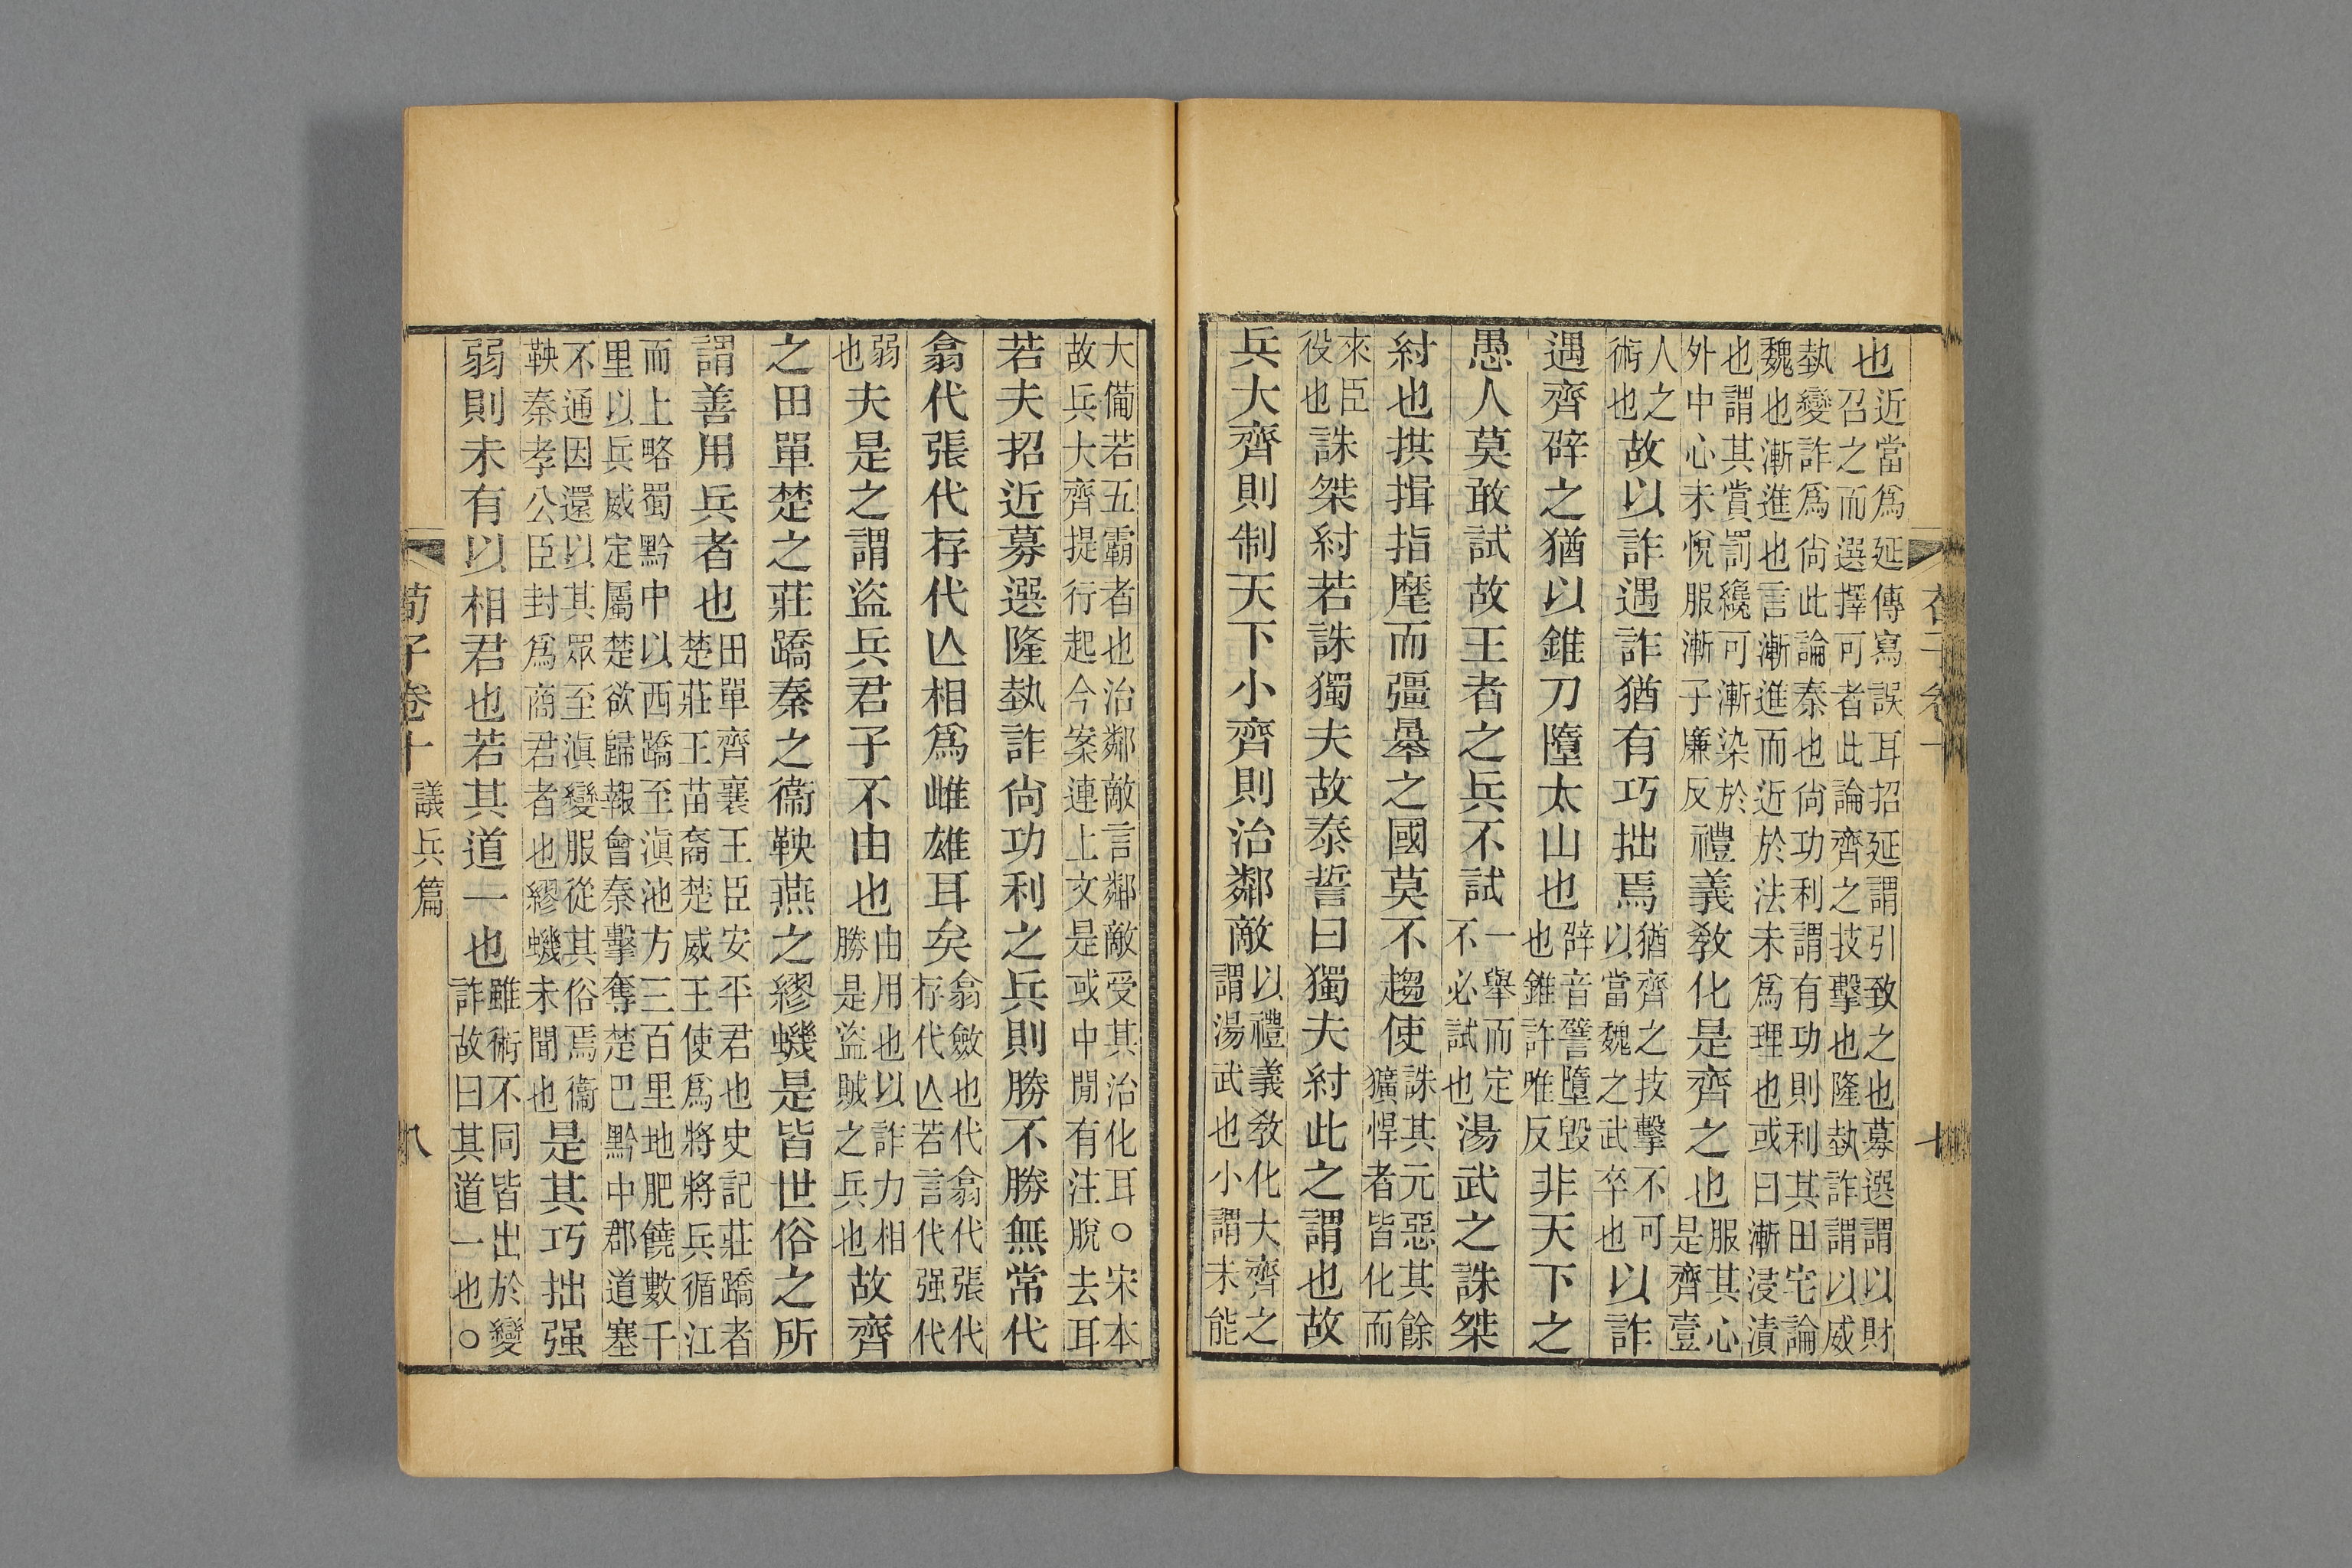 也近當爲延傳寫誤耳招延謂引致之也募選謂以財
召之而選擇可者此論齊之技擊也隆埶詐謂以威
埶變詐爲尙此論秦也尙功利謂有功則利其田宅論
魏也漸進也言漸進而近於法未爲理也或曰漸浸漬
也謂其賞罰纔可漸染於
外中心未悅服漸子廉反
禮義敎化是齊之也
服其心
是齊壹
人之
術也
故以詐遇詐猶有巧拙焉
猶齊之技擊不可
以當魏之武卒也
以詐
遇齊辟之猶以錐刀墮太山也
辟音譬墮毀
也錐許唯反
非天下之
愚人莫敢試故王者之兵不試
一舉而定
不必試也
湯武之誅桀
紂也拱揖指麾而彊暴之國莫不趨使
誅其元惡其餘
獷悍者皆化而
來臣
役也
誅桀紂若誅獨夫故泰誓曰獨夫紂此之謂也故
兵大齊則制天下小齊則治鄰敵
以禮義敎化大齊之
謂湯武也小謂未能
大備若五霸者也治鄰敵言鄰敵受其治化耳○宋本
故兵大齊提行起今案連上文是或中閒有注脫去耳
若夫招近募選隆埶詐尙功利之兵則勝不勝無常代
翕代張代存代亾相爲雌雄耳矣
翕斂也代翕代張代
存代亾若言代强代
弱
也
夫是之謂盜兵君子不由也
由用也以詐力相
勝是盜賊之兵也
故齊
之田單楚之莊蹻秦之衞鞅燕之繆蟣是皆世俗之所
謂善用兵者也
田單齊襄王臣安平君也史記莊蹻者
楚莊王苗裔楚威王使爲將將兵循江
而上略蜀黔中以西蹻至滇池方三百里地肥饒數千
里以兵威定屬楚欲歸報會秦擊奪楚巴黔中郡道塞
不通因還以其眾至滇變服從其俗焉衞
鞅秦孝公臣封爲商君者也繆蟣未聞也
是其巧拙强
弱則未有以相君也若其道一也
雖術不同皆出於變
詐故曰其道一也○
荀子卷十
議兵篇
八